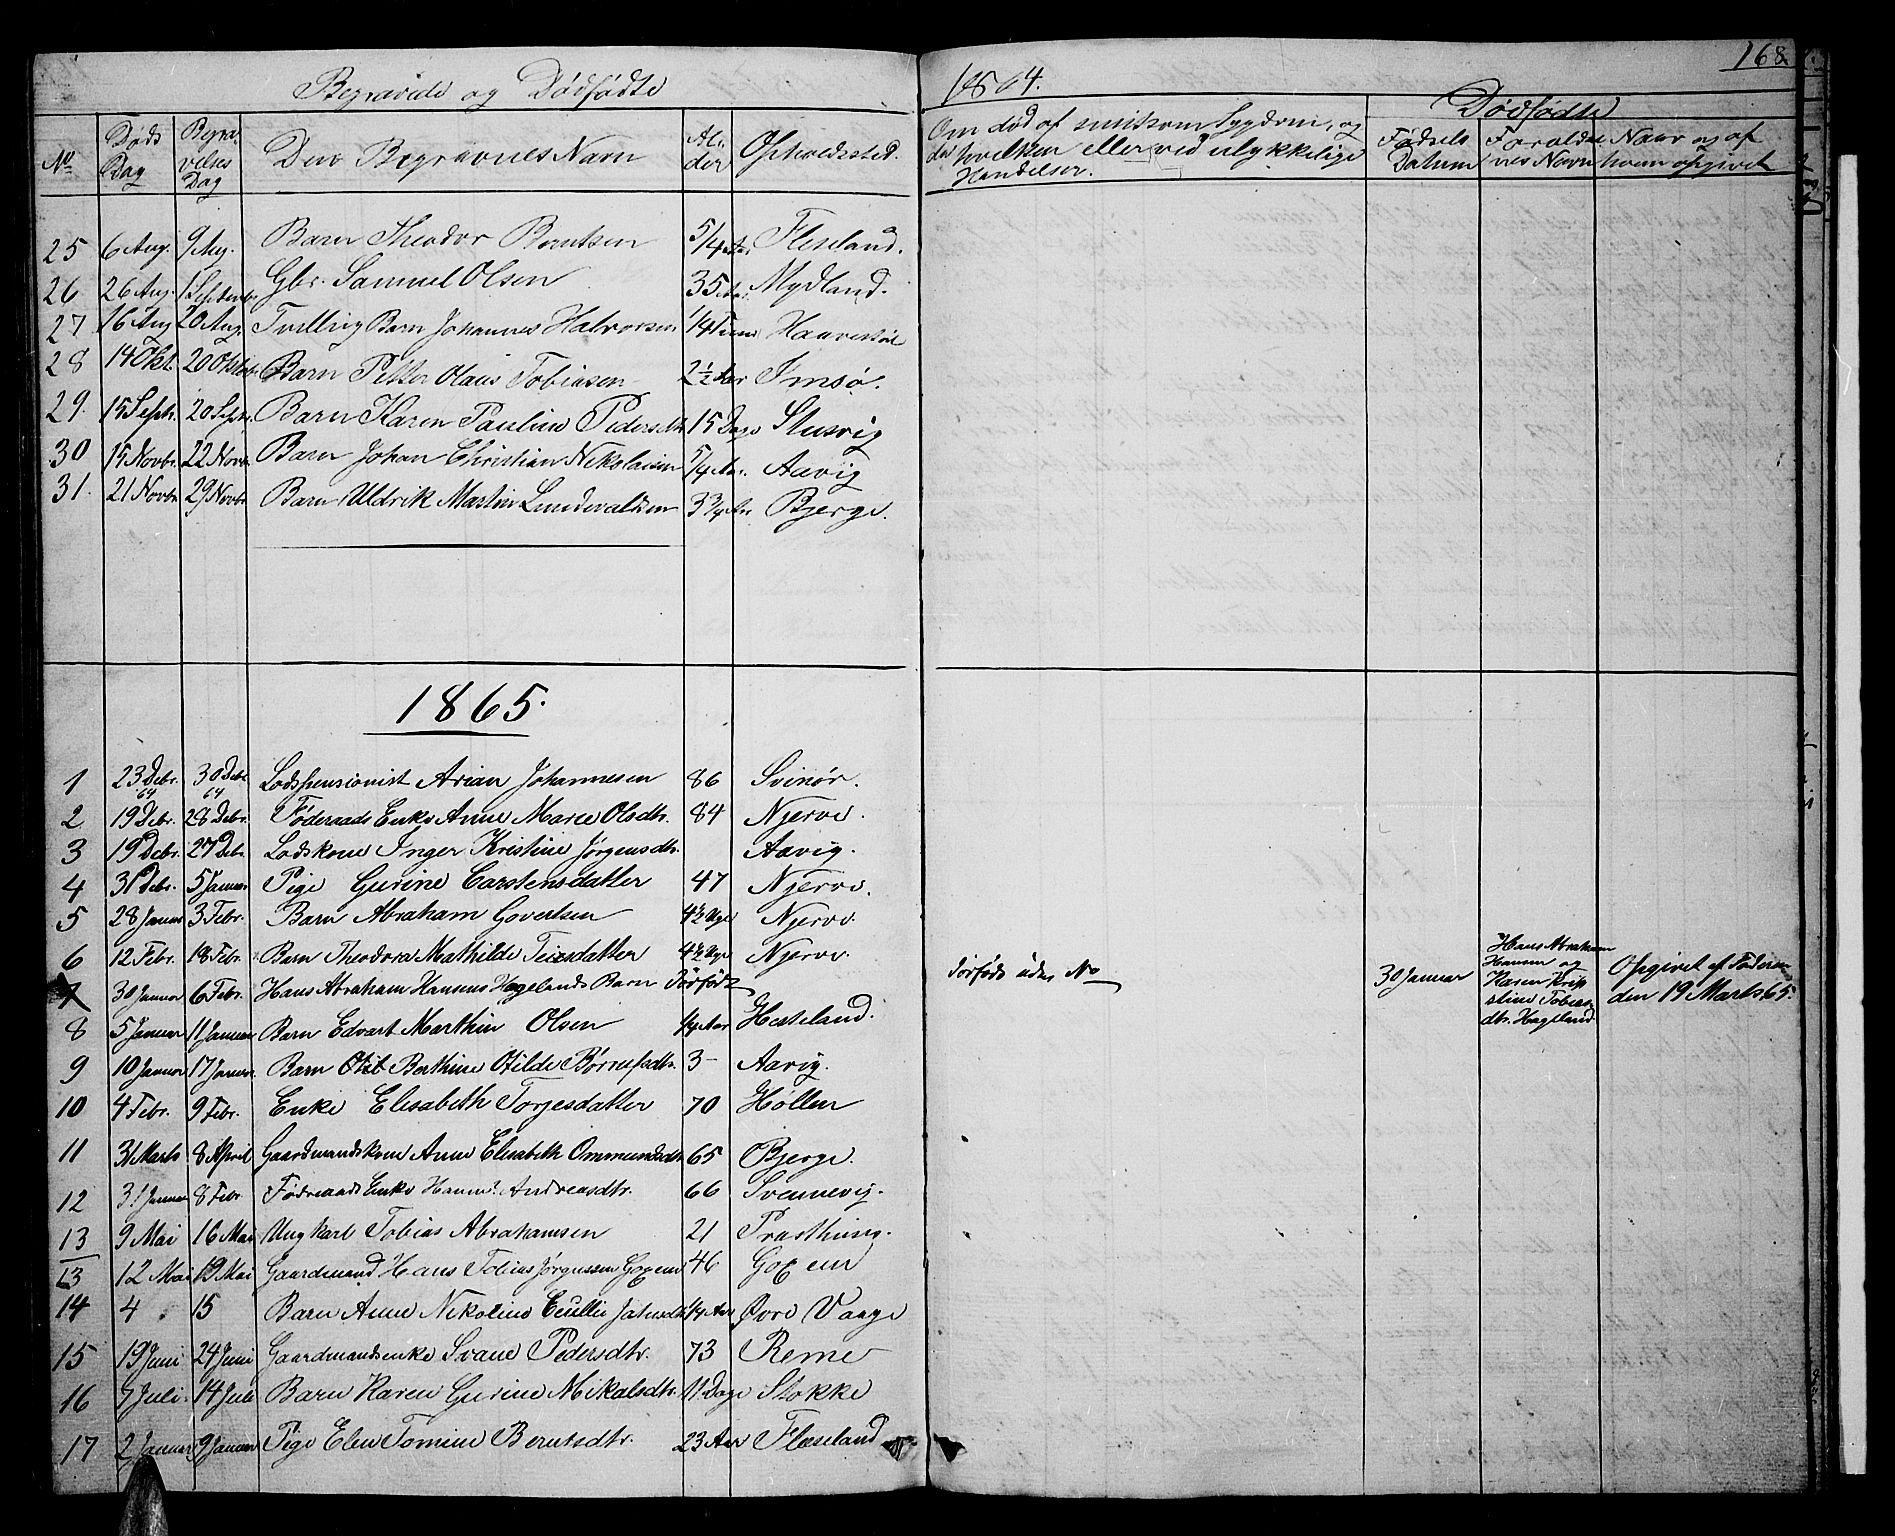 168
Begravede og Dødfødte 1864.
No Døds Dag Begravelses Dag Den Begravnes Navn Alder Opholdssted. Om død af smitsom Sygdom, og
der hvilken eller ved ulykkelige
Hændelser.
Dødfødte
Fødsels Datum Forældrenes Navn Naar og af hvem opgivet
25 6 Aug. 9 Aug. Barn Theodor Berntsen 5/4 Aar Fleseland.
26 26 Aug. 1 Septembr Gbr. Samuel Olsen 35 Aar Mydland.
27 16 Aug 20 Aug Tvilling Barn Johannes Halvorsen 1/4 Time Haavestøl
28 14 Okt. 20 Oktobr Barn Petter Olaus Tobiasen 2 1/2 Aar Imsø.
29. 15 Septr. 20 Septr. Barn Karen Pauline Pedersdtr 15 Dage Slusvig
30 15 Novbr. 22 Novbr Barn Johan Christian Nikolaisen 5/4 Aar. Aavig
31. 21 Novbr 29 Novbr Barn Uldrik Martin Lundevaldsen 3 3/4 Aar Bjerge.
1865.
1 23 Debr. 64 30 Debr 64 Lodspensionist Arian Johannesen 86 Svinør.
2 19 Debr. 28 Debr. Føderaads Enke Anne Marie Olsdtr. 84 Njerve.
3 19 Debr. 27 Debr. Lodskone Inger Kristine Jørgensdtr. Aavig.
4 31 Debr. 5 Januar Pige Gurine Carstensdatter 47 Njerve.
5 28 Januar 3 Febr. Barn Abraham Govertsen 4 1/2 Uge Njerve.
6 12 Febr. 18 Febr. Barn Theodora Mathilde Teisdatter 4 1/2 Uge Njerve.
7 30 Januar 6 Febr. Hans Abraham Hansens Hagelands Barn Dødfødt
dødføds uden No 30 Januar Hans Abraham
Hansen og
Karen Kri
stine Tobias
dtr. Hageland. Opgivet af Faderen
den 19 Marts 65.
8 5 Januar 11 Januar Barn Edvart Marthin Olsen 1/4 Aar Hesteland.
9 10 Januar 17 Januar. Barn Berthine Otilde Børresdtr. 3 - Aavig.
10 4 Febr. 9 Febr. Enke Elisabeth Torjesdatter 70 Høllen
11 31 Marts 8 April Gaardmandskone Anne Elisabeth Ommundsdtr 65 Bjerge.
12 31 Januar 8 Febr Føderaads Enke Hanne Andreasdtr. 66 Svennevig.
13 9 Mai 16 Mai Ungkarl Tobias Abrahamsen 21 Præsthuus.
13 12 Mai 19 Mai Gaardmand Hans Tobias Jørgensen 46
14 4 15 Barn Anne Nikoline 1/4 Aar Øvre Vaage
15 19 Juni 24 Juni Gaardmandsenke Svane Pedersdtr. 73 Reme
16 7 Juli. 14 Juli Barn Karen Gurine Mikalsdtr. 11 Dage Stokke
17 2 Januar 9 Januar Pige Elen Tomine Berntsdtr. 23 Aar Fleseland